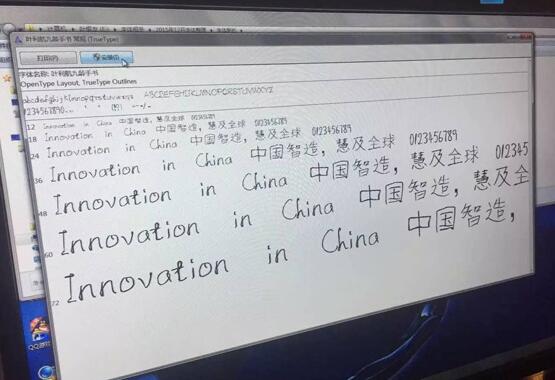 (TrueType)
打印(P)
安装(I)
OpenType Layout, TrueType Outlines
abcdefghijklmnopqrstuvwxyz ABCDEFGHIJKLMNOPQRSTUVWXYZ
12 Innovation in China 中国智造，慧及全球 0123456789
18 Innovation in China 中国智造，慧及全球 0123456789
24 Innovation in China 中国智造，慧及全球 0123456789
36 Innovation in China 中国智造，慧及全球 012345
48 Innovation in China 中国智造，慧及全
60 Innovation in China 中国智造，
72 Innovation in China 中国智造，